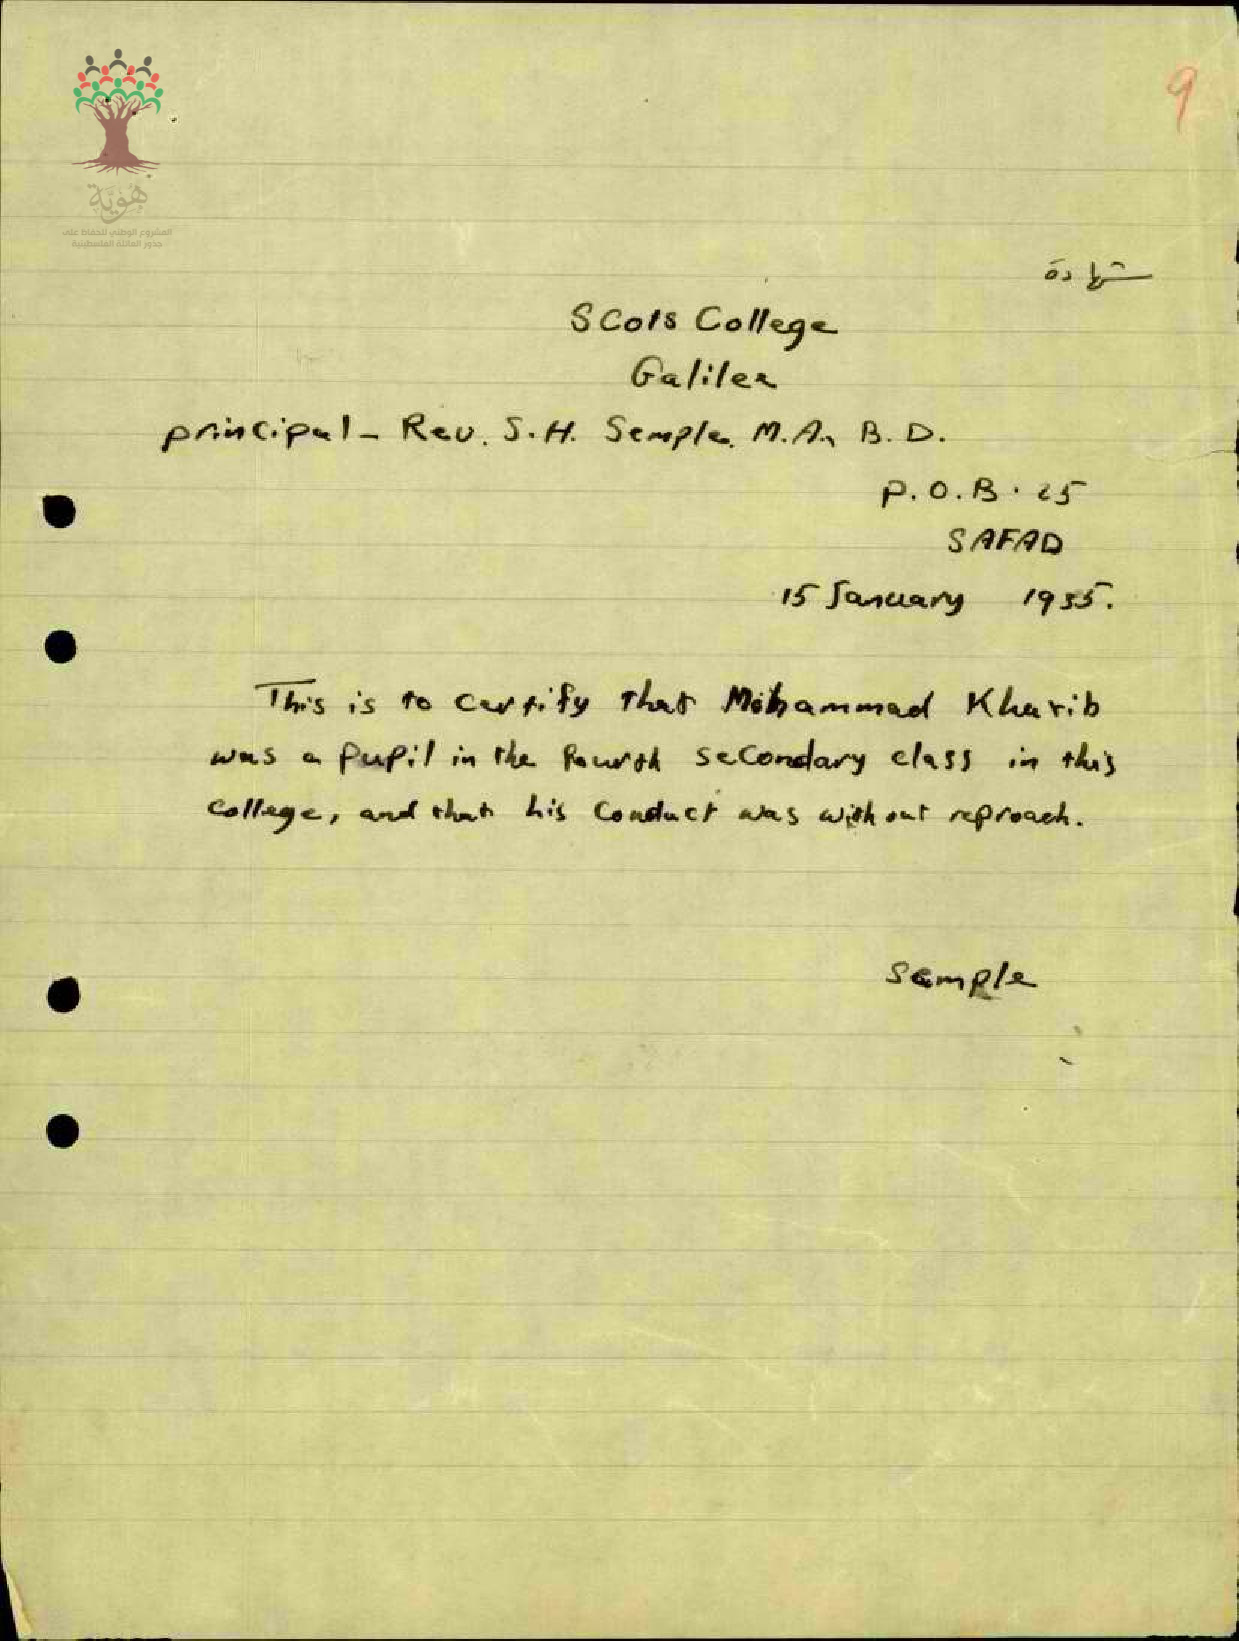 9
هوية
المشروع الوطني للحفاظ على
جذور العائلة الفلسطينية
شهادة
SCots College
Galilee
principal - Rev. S.H. Semple. M.A., B.D.
P.O.B. 25
SAFAD
15 January 1935.
This is to certify that Mohammad Kharib
was a pupil in the fourth secondary class in this
college, and that his conduct was without reproach.
Semple